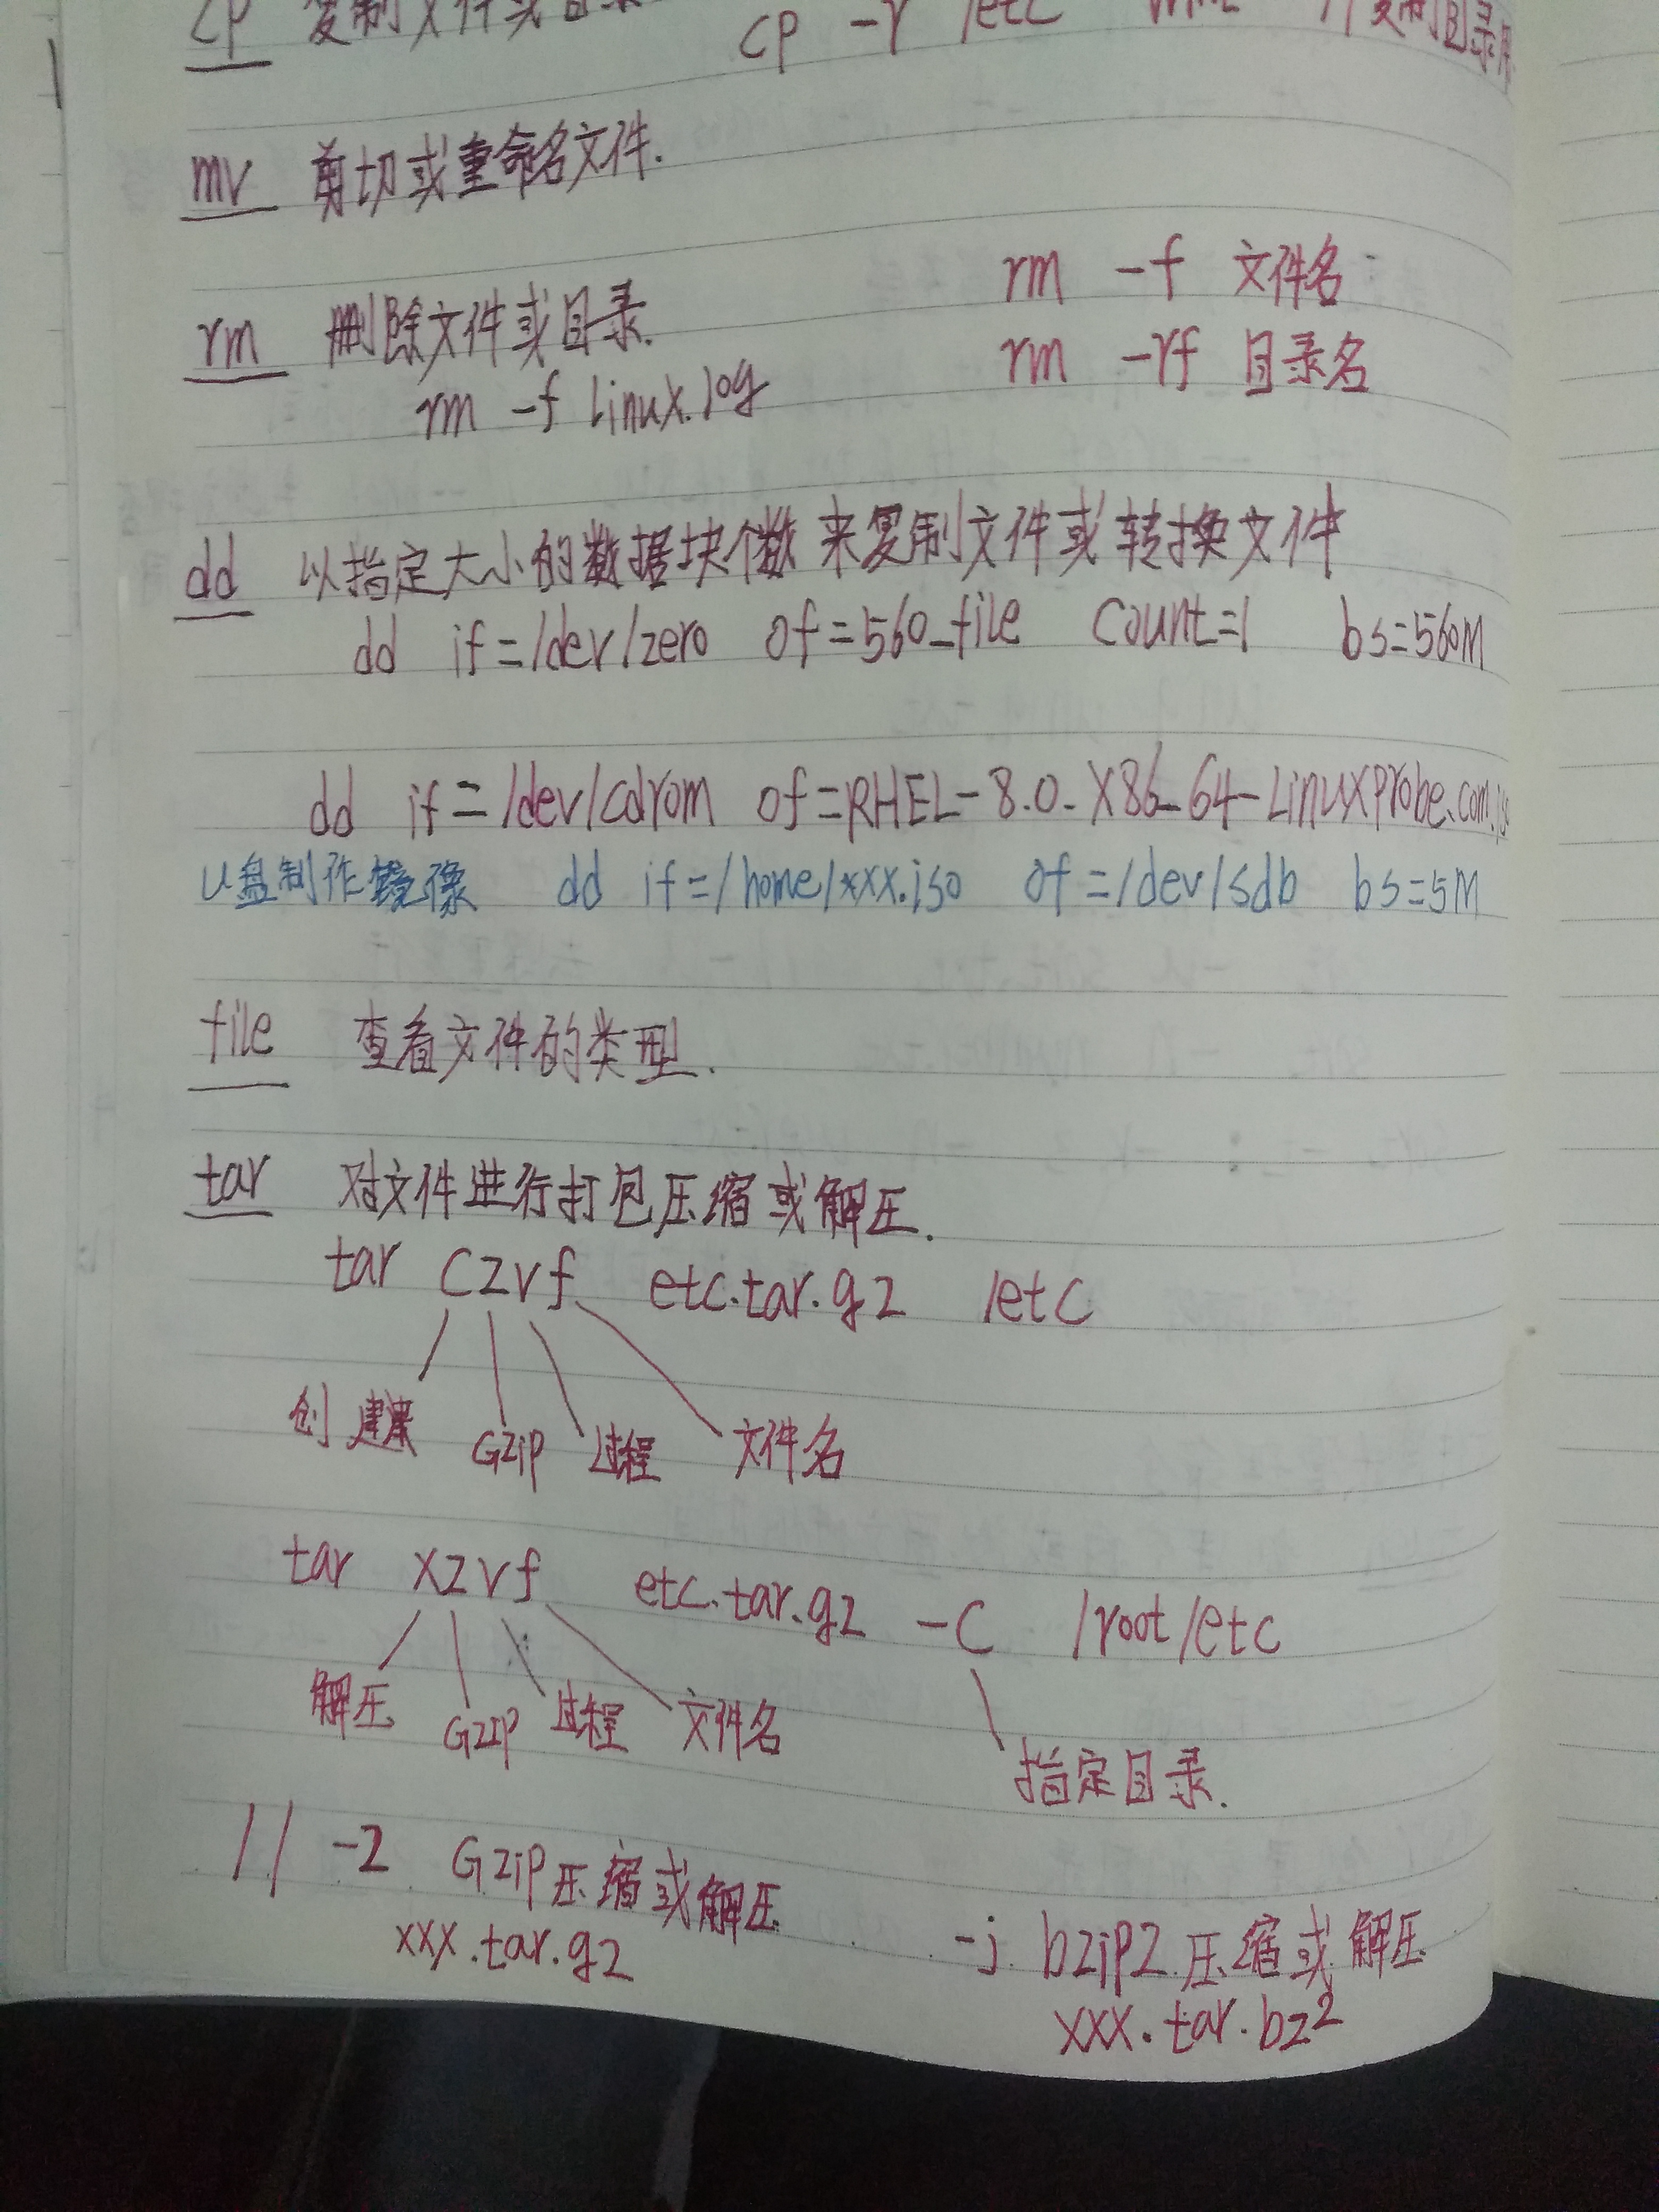 cp 复制文件或目录 cp -r /etc // 复制目录用
mv 剪切或重命名文件.
rm 删除文件或目录. rm -f 文件名
rm -f Linux.log rm -rf 目录名
dd 以指定大小的数据块个数来复制文件或转换文件
dd if=/dev/zero of=560_file count=1 bs=560M
dd if=/dev/cdrom of=RHEL-8.0-X86_64-LinuxProbe.com.iso
U盘制作镜像 dd if=/home/xxx.iso of=/dev/sdb bs=5M
file 查看文件的类型.
tar 对文件进行打包压缩或解压.
tar czvf etc.tar.gz /etc
创建 Gzip 过程 文件名
tar xzvf etc.tar.gz -C /root/etc
解压 GZIP 过程 文件名
指定目录.
// -z Gzip压缩或解压
xxx.tar.gz
-j bzip2 压缩或解压
xxx.tar.bz2